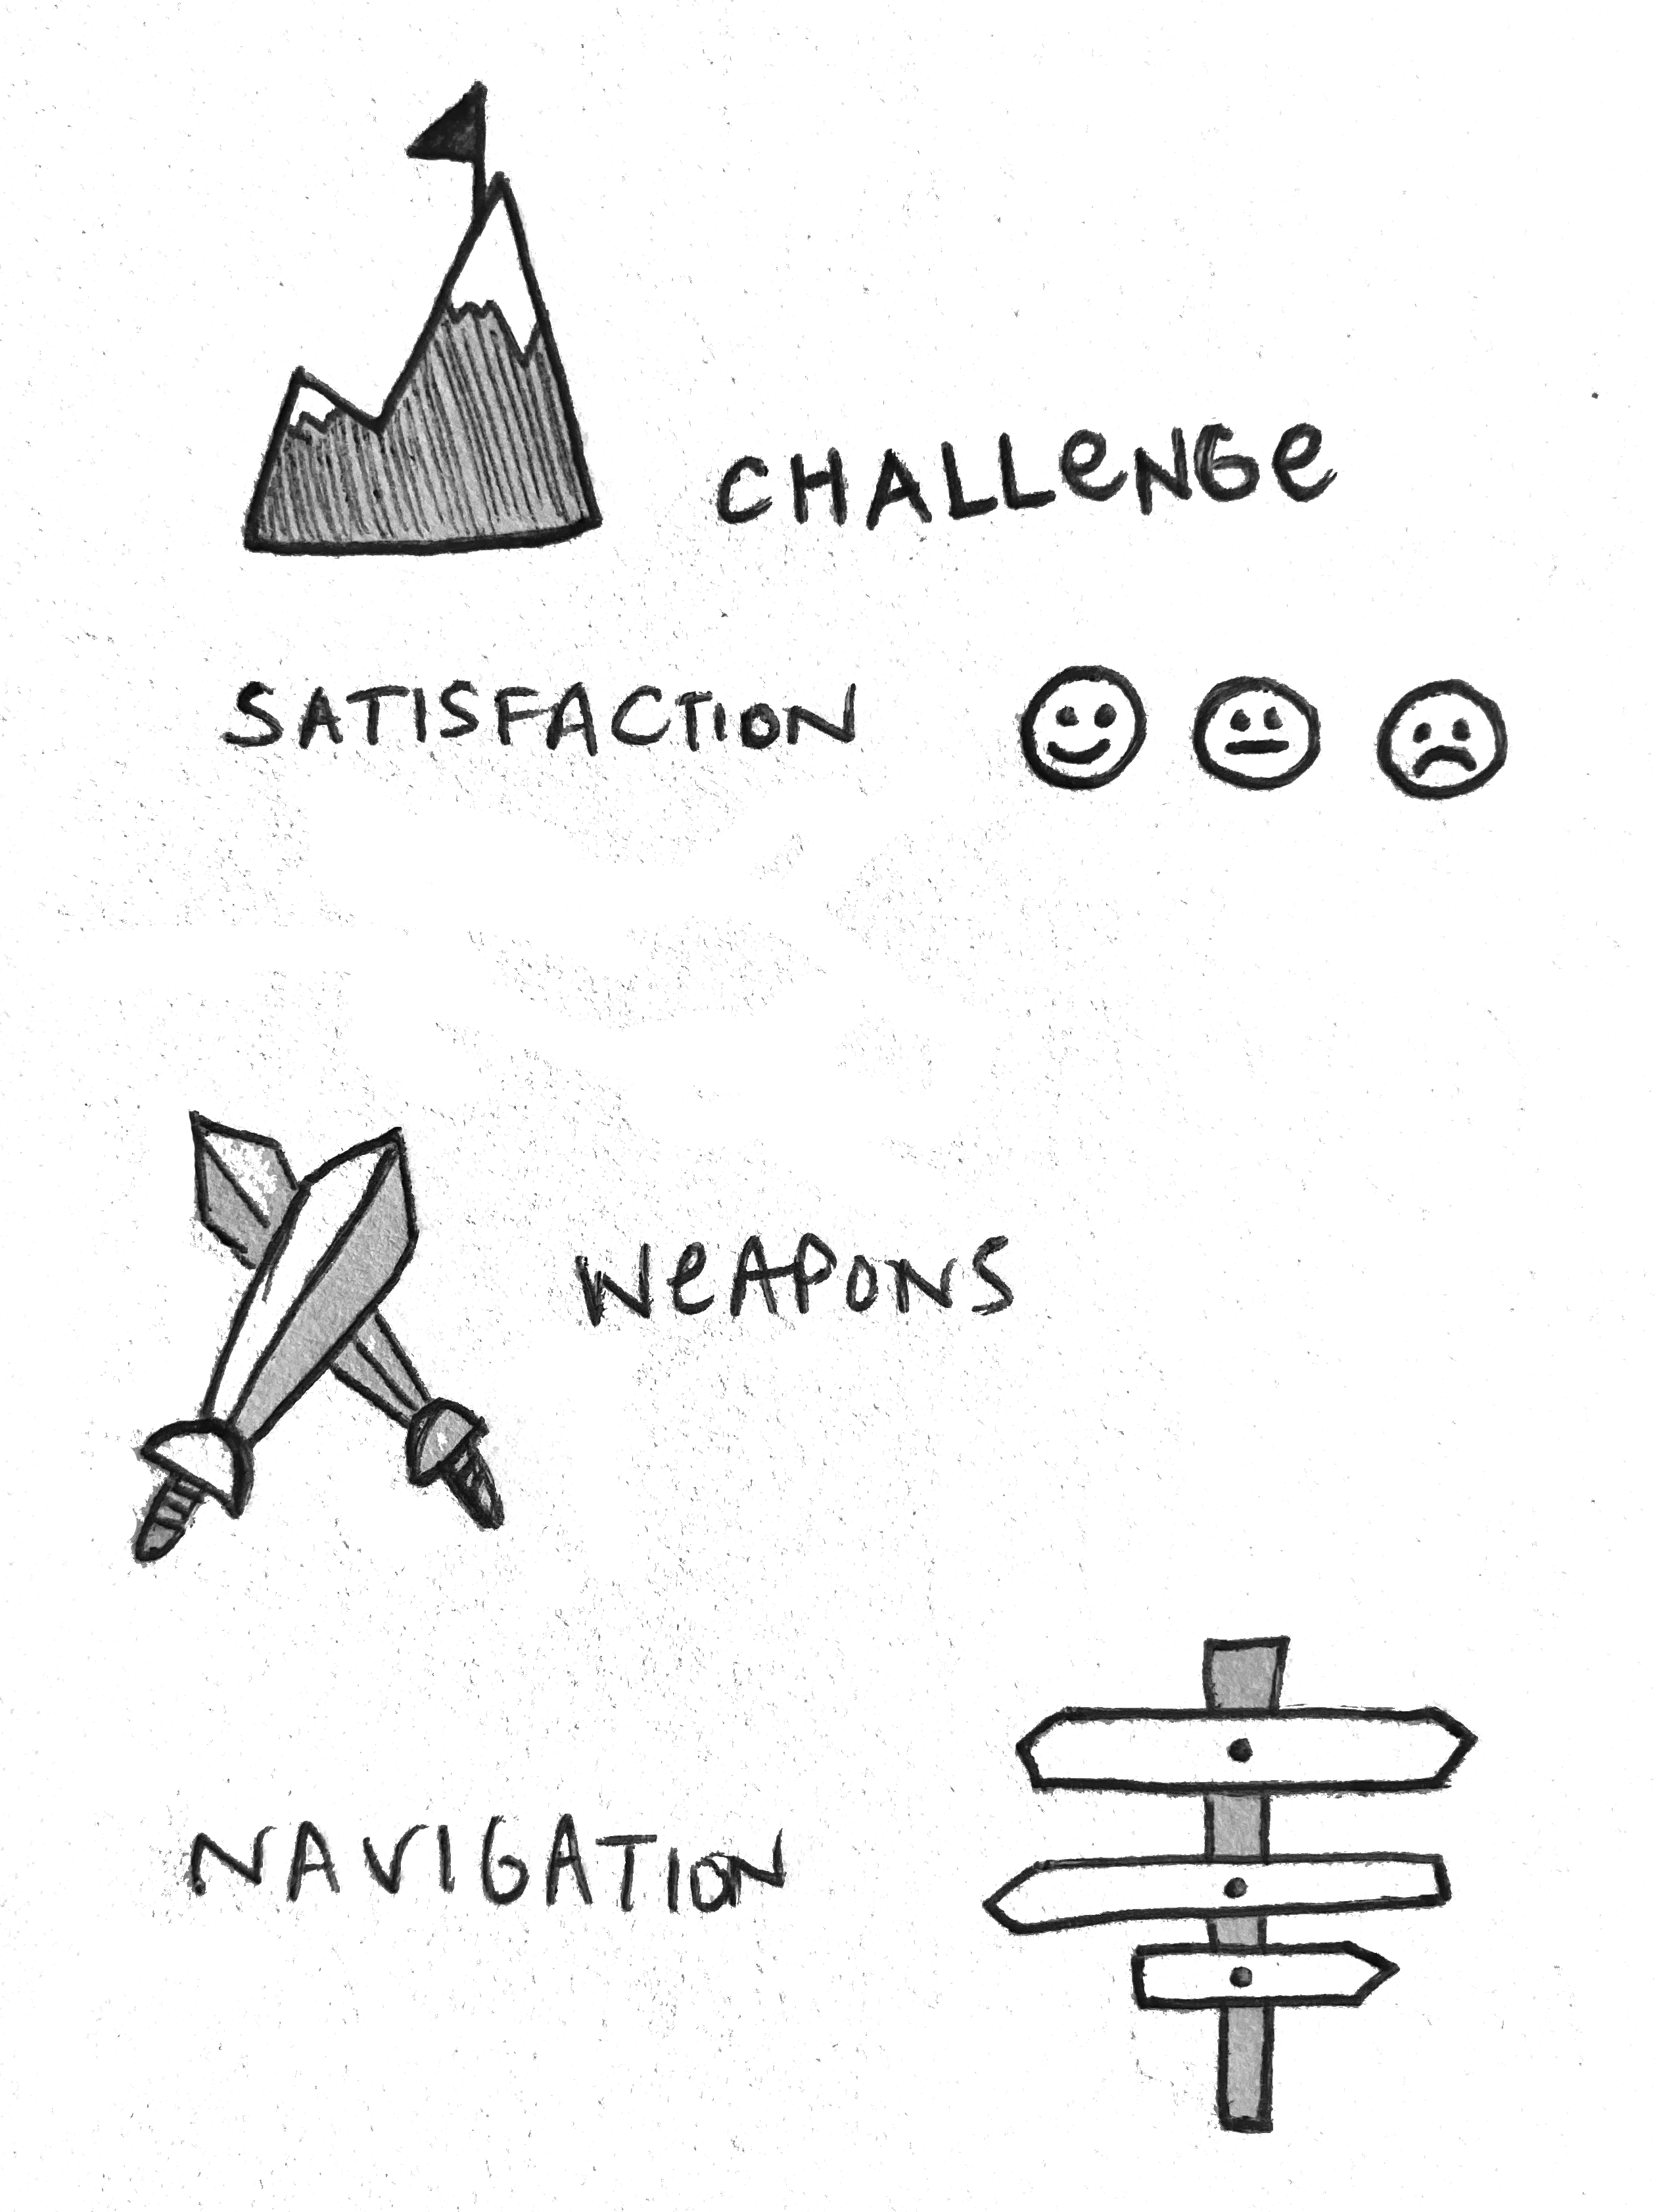 CHALLeNGe
SATISFACTION
WeAPONS
NAVIGATION